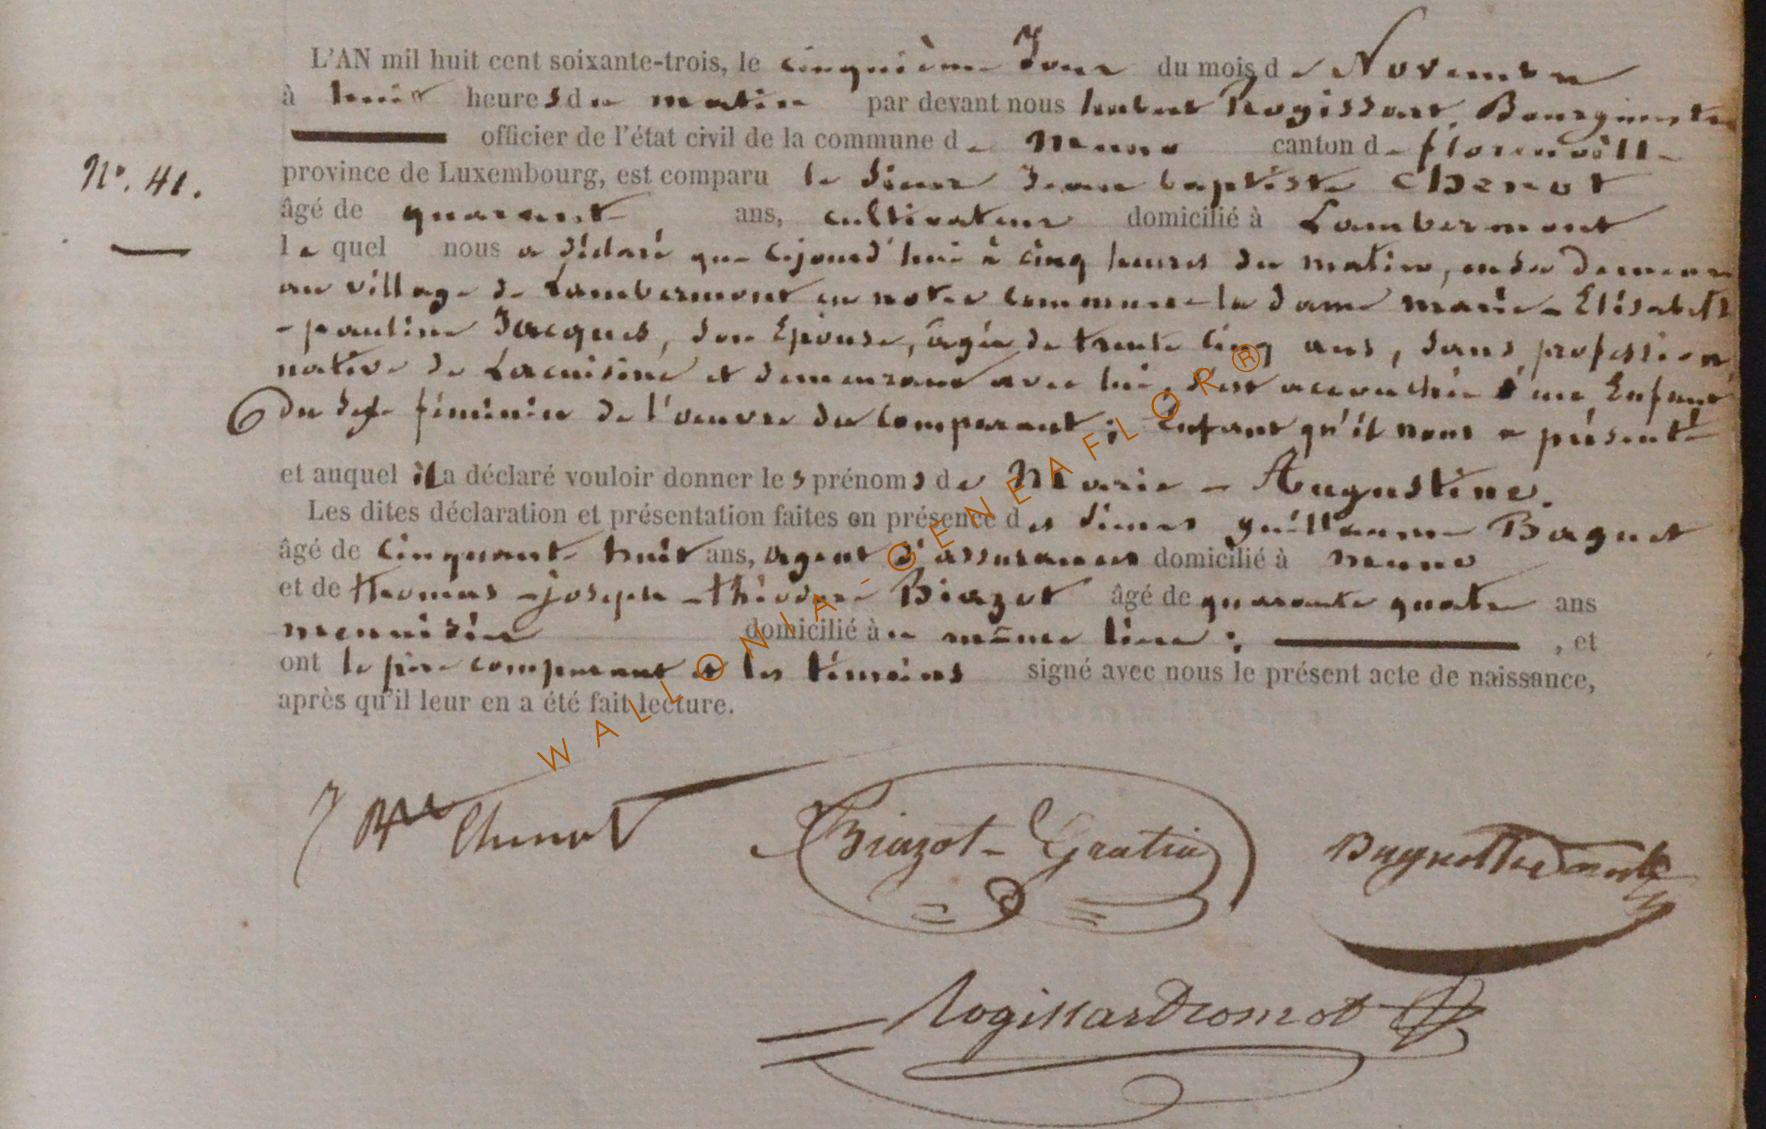 L'AN mil huit cent soixante-trois, le cinquième Jour du mois de Novembre
à huit heures du matin par devant nous hubert Rogissart, Bourgmestre
officier de l'état civil de la commune de Muno canton de florenville
N°. 41.
province de Luxembourg, est comparu le Sieur Jean baptiste Chenot
âgé de quarante ans, cultivateur domicilié à Lambermont
lequel nous a déclaré que cejourd'hui à cinq heures du matin, en sa demeure
au village de Lambermont en notre commune la dame marie-Elisabeth
-pauline Jacques, son Epouse, âgée de trente cinq ans, sans profession
native de Lacuisine et demeurant avec lui, s'est accouchée d'une Enfant
du sexe féminin de l'oeuvre du Comparant; Enfant qu'il nous a présenté
et auquel il a déclaré vouloir donner les prénoms de Marie - Augustine.
Les dites déclaration et présentation faites en présence des Sieurs guillaume Baguet
âgé de cinquante huit ans, agent d'assurances domicilié à Muno
et de thomas-joseph-théodore Biazot âgé de quarante quatre ans
menuisier domicilié à au même lieu; , et
ont le père comparant et les témoins signé avec nous le présent acte de naissance,
après qu'il leur en a été fait lecture.
WALLONIA-GENEAFLOR®
J Bte Chenot
Biazot-Gratia
Rogissart Dromzot